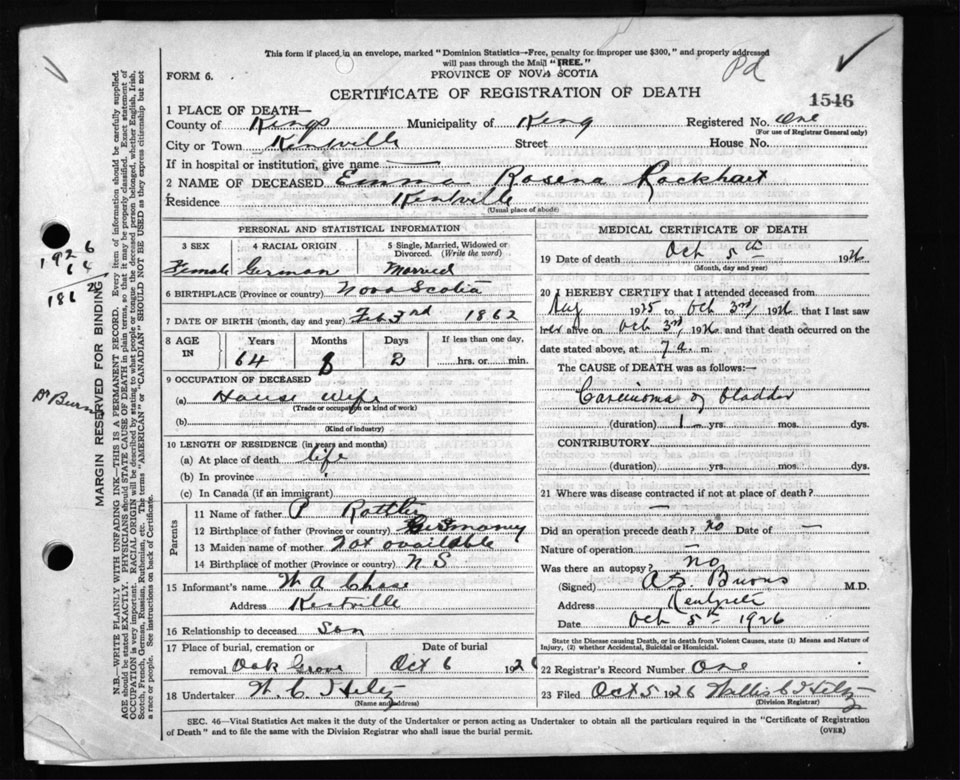 This form if placed in an envelope, marked "Dominion Statistics—Free, penalty for improper use $300," and properly addressed
will pass through the Mail "FREE."
Pd
FORM 6.
PROVINCE OF NOVA SCOTIA
CERTIFICATE OF REGISTRATION OF DEATH
1546
1 PLACE OF DEATH—
County of Kings Municipality of King Registered No. One
(For use of Registrar General only)
City or Town Kentville Street House No.
If in hospital or institution, give name —
2 NAME OF DECEASED Emma Rosena Rockhart
Residence Kentville
(Usual place of abode)
PERSONAL AND STATISTICAL INFORMATION
3 SEX 4 RACIAL ORIGIN 5 Single, Married, Widowed or Divorced. (Write the word)
Female German Married
6 BIRTHPLACE (Province or country) Nova Scotia
7 DATE OF BIRTH (month, day and year) Feb 3rd 1862
8 AGE IN Years Months Days If less than one day,
64 8 2 hrs. or min.
9 OCCUPATION OF DECEASED
(a) House Wife
(Trade or occupation or kind of work)
(b)
(Kind of industry)
10 LENGTH OF RESIDENCE (in years and months)
(a) At place of death life
(b) In province
(c) In Canada (if an immigrant)
Parents
11 Name of father P
12 Birthplace of father (Province or country) Germaney
13 Maiden name of mother Not available
14 Birthplace of mother (Province or country) N S
15 Informant's name W A Chase
Address Kentville
16 Relationship to deceased son
17 Place of burial, cremation or removal Oak Grove Date of burial Oct 6 1926
18 Undertaker W. C. Hiltz
(Name and address)
MEDICAL CERTIFICATE OF DEATH
19 Date of death Oct 5th 1926
(Month, day and year)
20 I HEREBY CERTIFY that I attended deceased from
Aug 1925 to Oct 3rd, 1926 that I last saw
her alive on Oct 3rd, 1926. and that death occurred on the
date stated above, at 7 a. m.
The CAUSE of DEATH was as follows:—
Carcinoma of bladder
(duration) 1 yrs. mos. dys.
CONTRIBUTORY
(duration) yrs. mos. dys.
21 Where was disease contracted if not at place of death?
—
Did an operation precede death? no Date of —
Nature of operation —
Was there an autopsy? no
(Signed) A.S. Burns M.D.
Address Kentville
Date Oct 5th 1926
State the Disease causing Death, or in death from Violent Causes, state (1) Means and Nature of
Injury, (2) whether Accidental, Suicidal or Homicidal.
22 Registrar's Record Number One
23 Filed Oct 5 1926 Willis C Hiltz
(Division Registrar)
SEC. 46—Vital Statistics Act makes it the duty of the Undertaker or person acting as Undertaker to obtain all the particulars required in the "Certificate of Registration
of Death" and to file the same with the Division Registrar who shall issue the burial permit.
(OVER)
1926
64
1862
Dr Burns
MARGIN RESERVED FOR BINDING
N.B.—WRITE PLAINLY WITH UNFADING INK—THIS IS A PERMANENT RECORD. Every item of information should be carefully supplied.
AGE should be stated EXACTLY. PHYSICIANS should STATE CAUSE OF DEATH in plain terms, so that it may be properly classified. Exact statement of
OCCUPATION is very important. RACIAL ORIGIN will be described by stating to what people or tongue the deceased person belonged, whether English, Irish,
Scotch, French, German, Russian, Ruthenian, etc. The terms "AMERICAN" or "CANADIAN" SHOULD NOT BE USED as they express citizenship but not
a race or people. See instructions on back of Certificate.